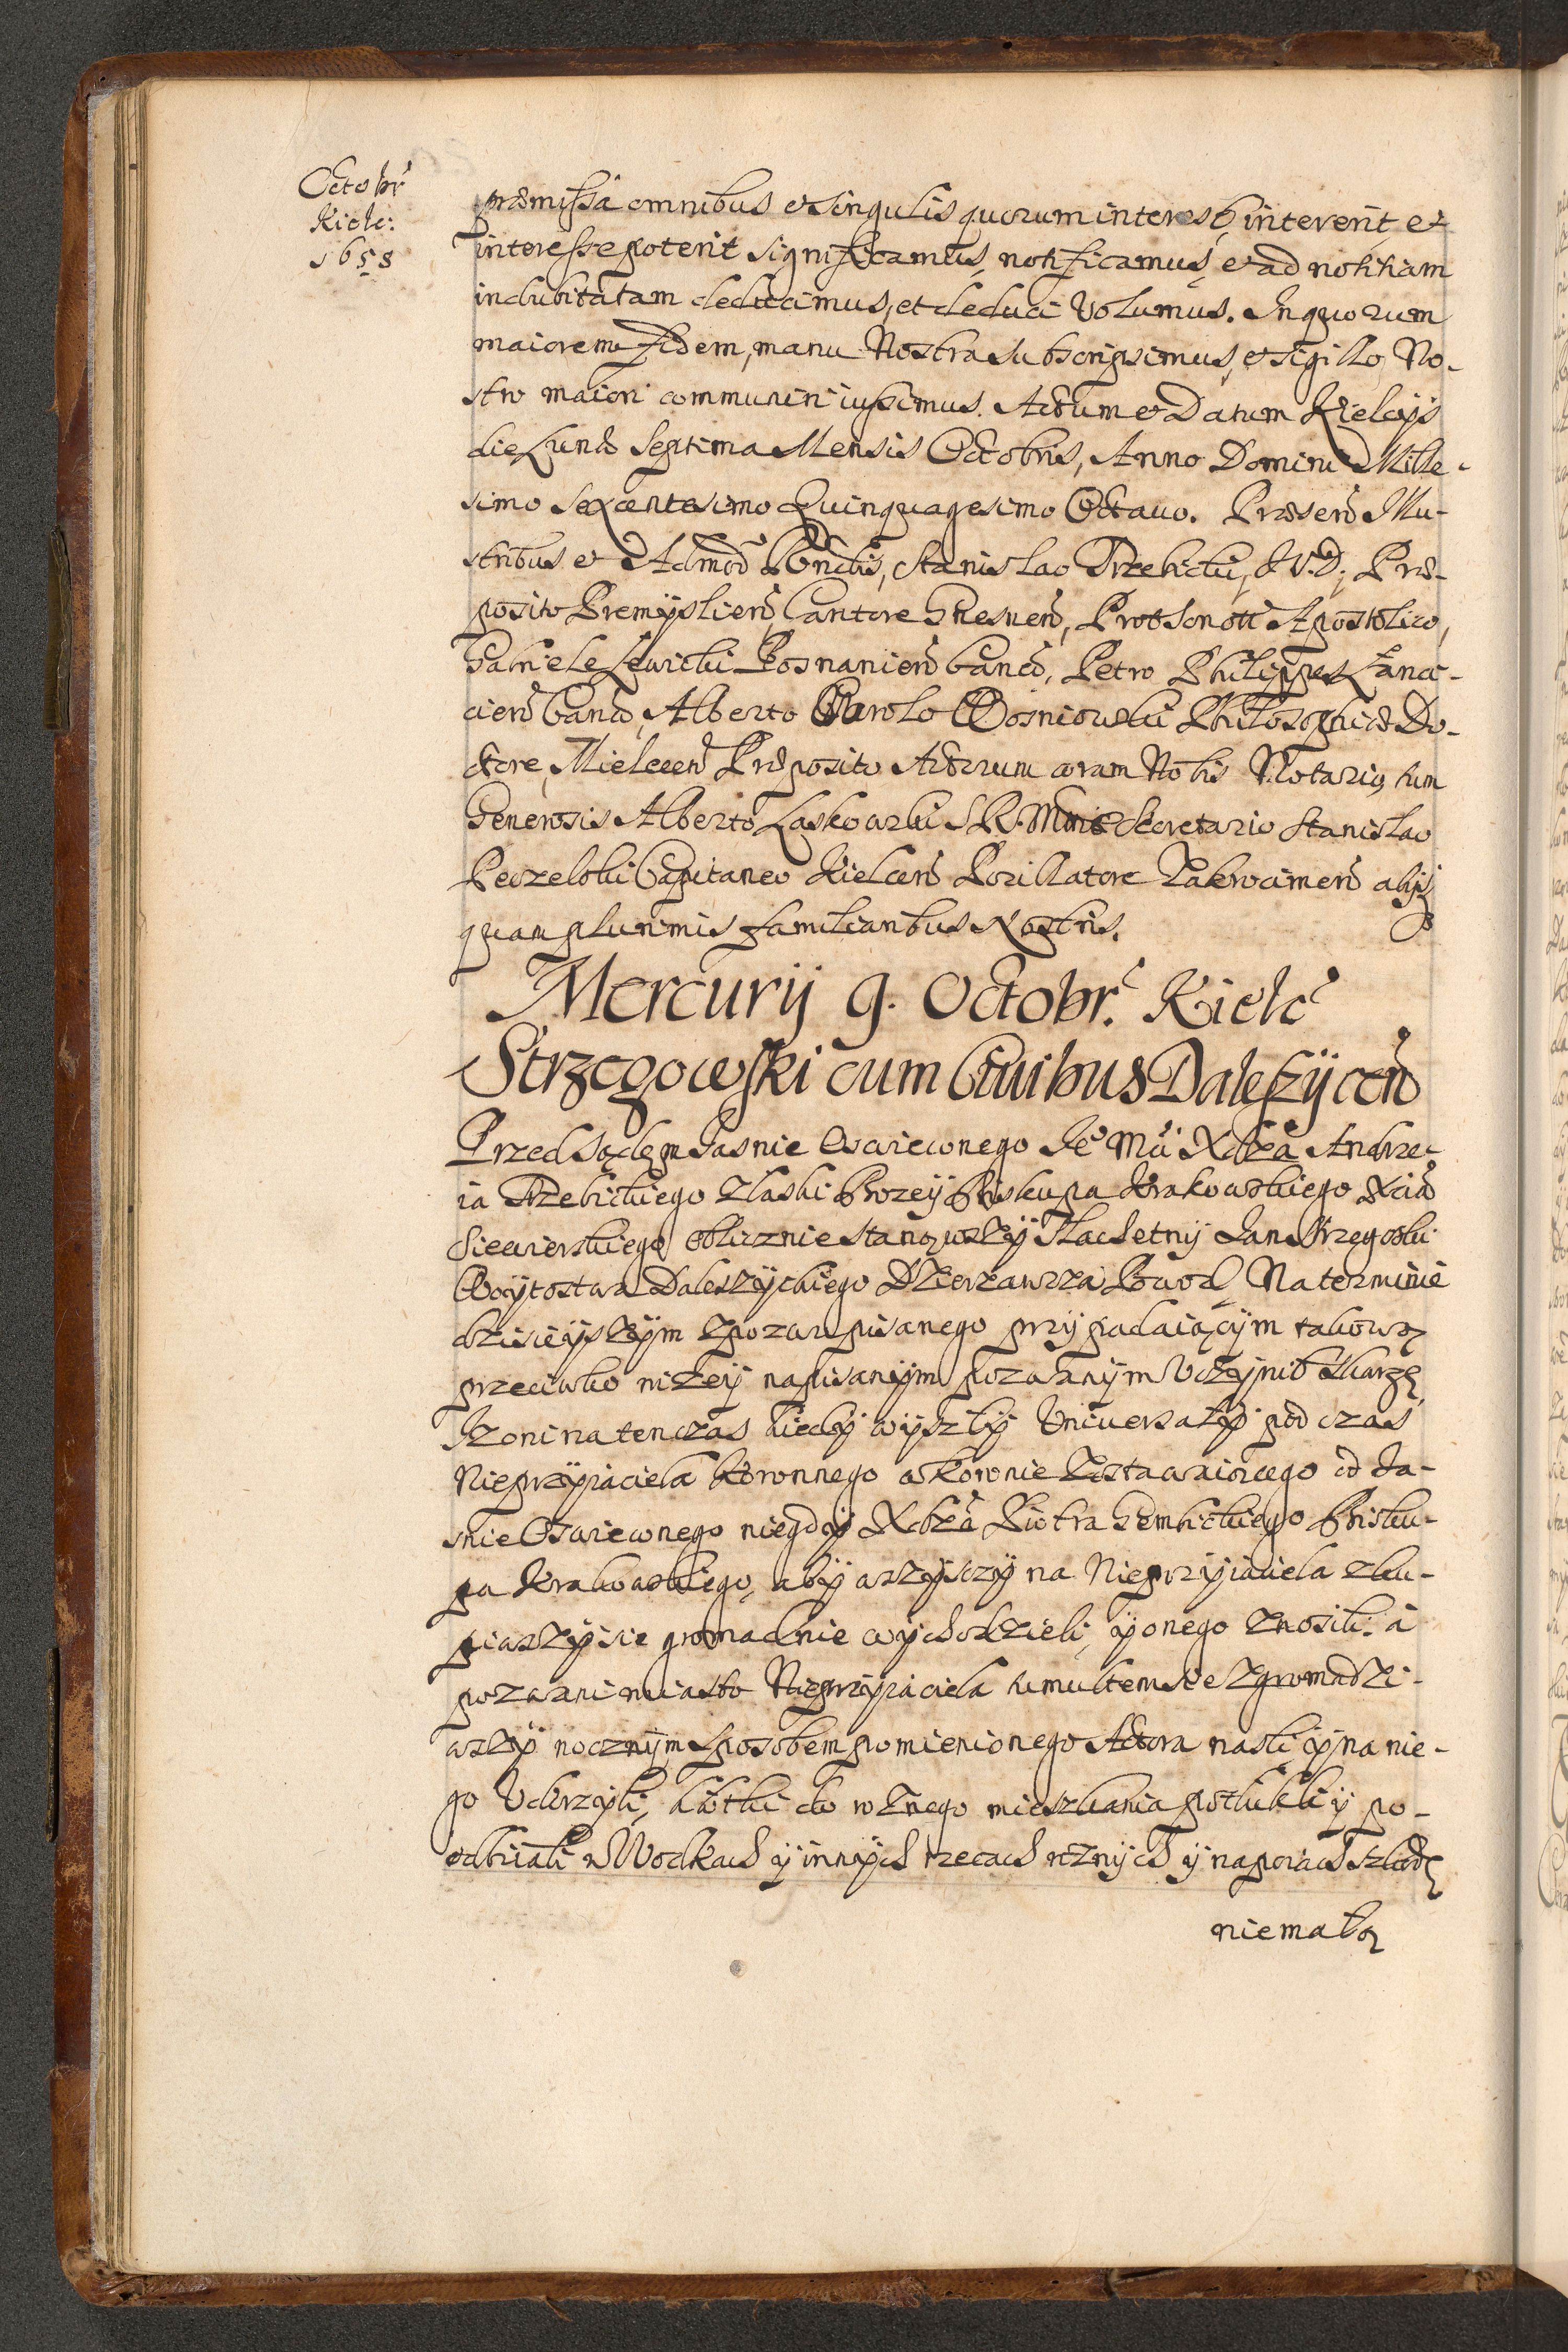 Octobr
Kielc:
1658
præmissa omnibus et singulis quorum interest, intererit, et
interesse poterit significamus, notificamus, et ad notitiam
indubitatam deducimus, et deduci Volumus. In quorum
maiorem fidem, manu Nostra subscripsimus, et sigillo No-
stro maiori communiri iussimus. Actum et Datum Kielcijs
die Lunæ Septima Mensis Octobris, Anno Domini Mille-
simo Sexcentesimo Quinquagesimo Octauo. Præsen Illu-
stribus et Admod Rndis, Stanislao Trzebicki, J.V.D; Præ-
posito Premyslien, Cantore Gnesnen, Prothonott Apostolico,
Gabriele Lewicki Posnanien Canco, Petro Philippes Lanci-
cien Canco, Alberto Carolo Wosniowski Philosophiæ Do-
ctore, Mielecen Præposito Actorum coram Nobis Notario, tum
Generosis Alberto Laskowski S.R. Mttis Secretario Stanislao
Peczelski Capitaneo Kielcen Pocillatore Zakrocimen alijs
quam plurimis familiaribus Nostris.
Mercurij 9. Octobr. Kielc
Strzegowski cum Ciuibus Daleszycen
Przed Sądem Jasnie Oswieconego Je Mci Xdza Andrze-
ia Trzebickiego Z łaski Bozey Biskupa Krakowskiego Xcia
Siewierskiego oblicznie stanąwszy Slachetny Jan Strzegoski
Woytostwa Daleszyckiego Dzierzawcza Powod, Na terminie
dzisieyszym z pozwu pisanego przypadaiącym takową
przeciwko nizey napisanym pozwanym Vczynił skargę,
Iz oni na ten czas kiedy wyszły Vniuersały pod czas
Nieprzyiaciela Koronnego w Koronie zostawaiącego od Ja-
snie Oswieconego niegdy Xdza Piotra Gembickiego Bisku-
pa Krakowskiego, aby wszyscy na Nieprzyiaciela sku-
piwszy sie gromadnie wychodzieli, y onego znosili. a
pozwani miasto Nieprzyiaciela tumultem sie zgromadzi-
wszy nocznym sposobem pomienionego Aktora naszli y na nie-
go Vderzyli, kłotki do roznego mieszkania potłukli y po-
odbiiali w Wodkach y innych rzecach roznych y napoiach szkodę
niemałą